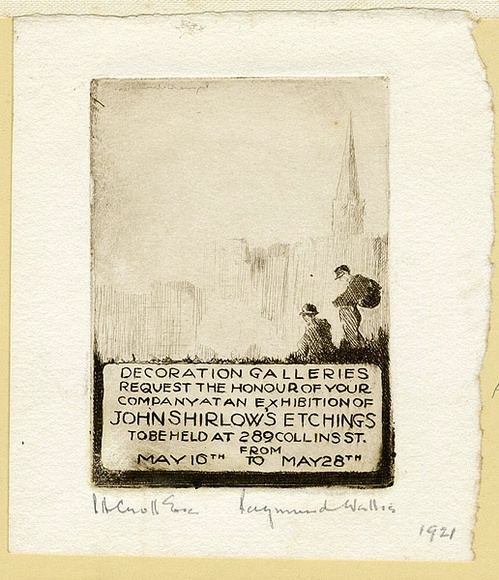 DECORATION GALLERIES
REQUEST THE HONOUR OF YOUR
COMPANY AT AN EXHIBITION OF
JOHN SHIRLOW'S ETCHINGS
TO BE HELD AT 289 COLLINS ST.
FROM
MAY 16TH TO MAY 28TH
Raymund Wallis
1921